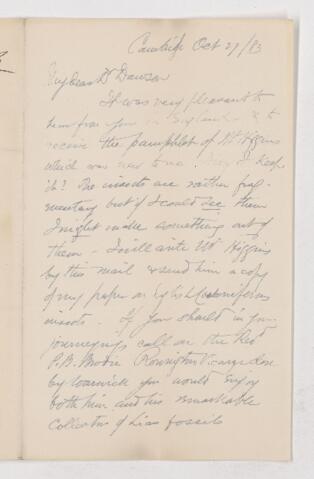 Cambridge Oct 29/83
My dear Dr Dawson
It was very pleasant to
hear from you in England & to
receive the pamphlet of Mr Higgins
which was new to me. May I keep
it? The insects are rather frag-
mentary but if I could see them
I might make something out of
them. I will write Mr Higgins
by this mail & send him a copy
of my paper on English Carboniferous
insects. If you should in your
journeyings call on the Revd
P. B. Brodie Rowington Vicarage close
by Warwick you would enjoy
both him and his remarkable
collection of Lias fossils